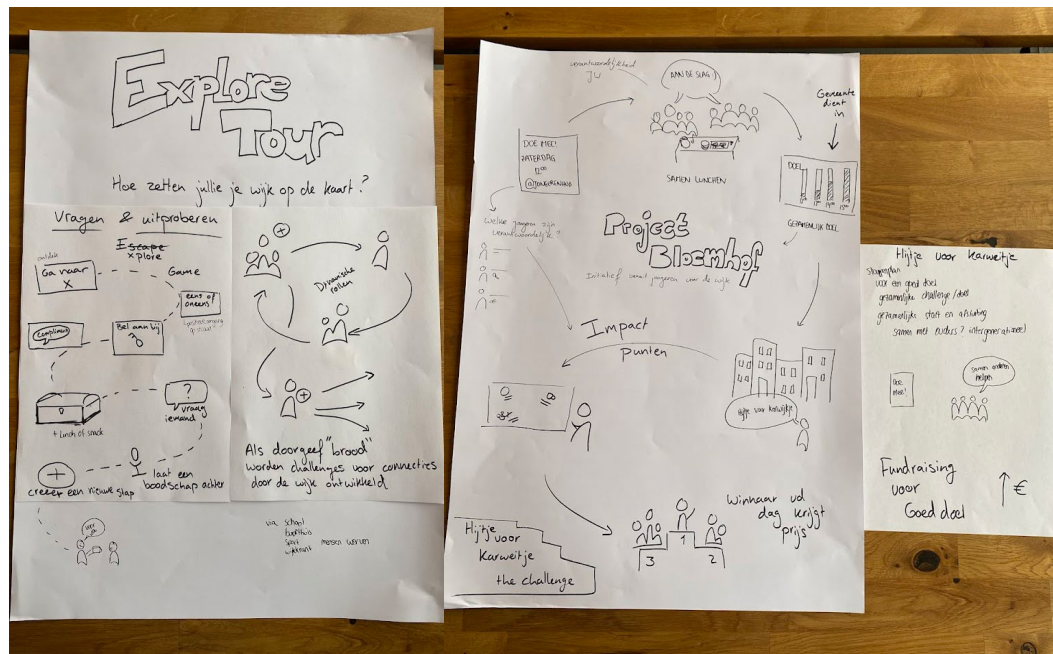 Explore
Tour
Hoe zetten jullie je wijk op de kaart?
Vragen & uitproberen
Escape
xplore
ontdek
Ga naar
X
Game
eens of
oneens
Compliment
Bel aan bij
+ lunch of snack
?
vraag
iemand
laat een
boodschap achter
creëer een nieuwe stap
Dynamische
rollen
Als doorgeef "brood"
worden challenges voor connecties
door de wijk ontwikkeld
via school
buurthuis
sport
wijkkrant
mensen werven
verantwoordelijkheid
JW
AAN DE SLAG :)
Gemeente
dient
in
DOE MEE!
ZATERDAG
12:00
SAMEN LUNCHEN
DOEL
GEZAMENLIJK DOEL
Welke jongeren zijn
verantwoordelijk?
Project
Bloemhof
Initiatief vanuit jongeren voor de wijk
Impact
punten
Hijtje voor karweitje
Winnaar vd
dag krijgt
prijs
1
2
3
Hijtje
voor
Karweitje
the challenge
Hijtje voor karweitje
Stappenplan
voor een goed doel
gezamenlijke challenge/doel
gezamenlijke start en afsluiting
samen met ouders? intergenerationeel
Doe
Mee!
Samen anderen
helpen
Fundraising
voor
Goed doel
€